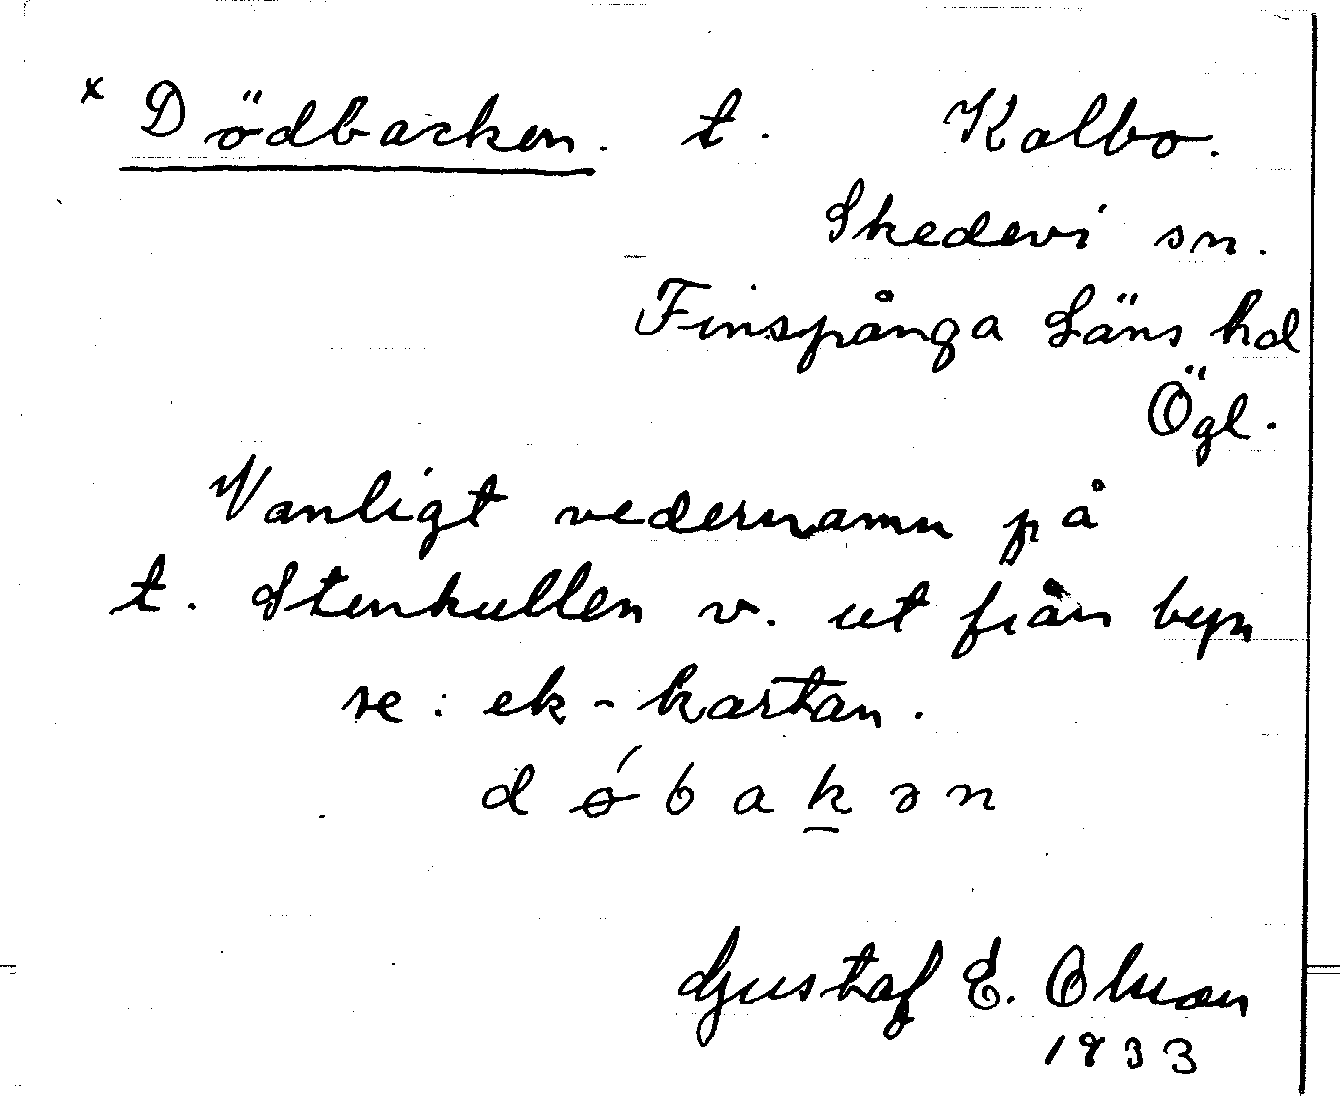 x Dödbacken. t. Kalbo.
Skedevi sn.
Finspånga Läns hd
Ögl.
Vanligt vedernamn på
t. Stenkullen v. ut från byn
se: ek-kartan.
dǿbak̲ən
Gustaf E. Olsson
1933